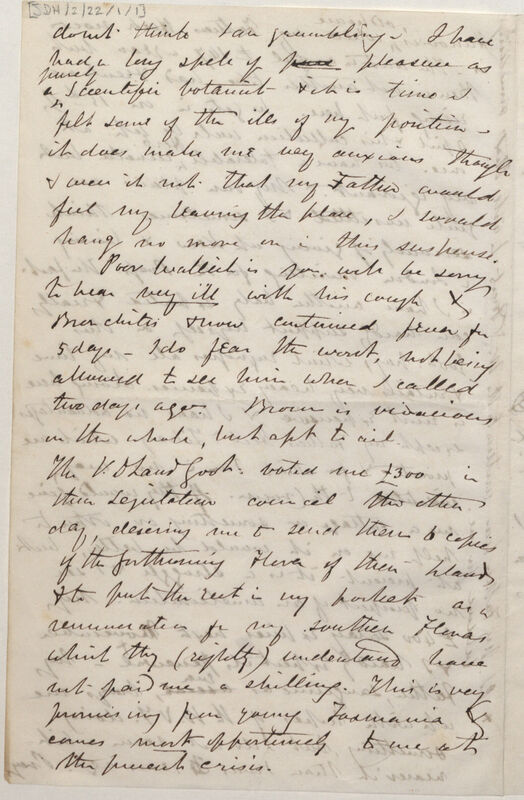 [JDH/2/22/1/1]
don't think I am grumbling. I have
had a long spell of pure pleasure as
purely
a Scientific botanist & it is time I
felt some of the ills of my position –
it does make me very anxious though
& were it not that my Father would
feel my leaving the place, I would
hang no more on in this suspense.
Poor Wallich is you will be sorry
to hear very ill with his cough &
Bronchitis & now continued fever for
5 days – I do fear the worst, not being
allowed to see him when I called
two days ago. Brown is vivacious
on the whole, but apt to ail.
The V. D Land Govt: voted me £300 in
their Legislative council the other
day, desiring me to send them 6 copies
of the forthcoming Flora of their Island
& to put the rest in my pocket as a
remuneration for my southern Floras
which they (rightly) understand have
not paid me a shilling. This is very
promising from young Tasmania &
comes most opportunely to me at
the present crisis.